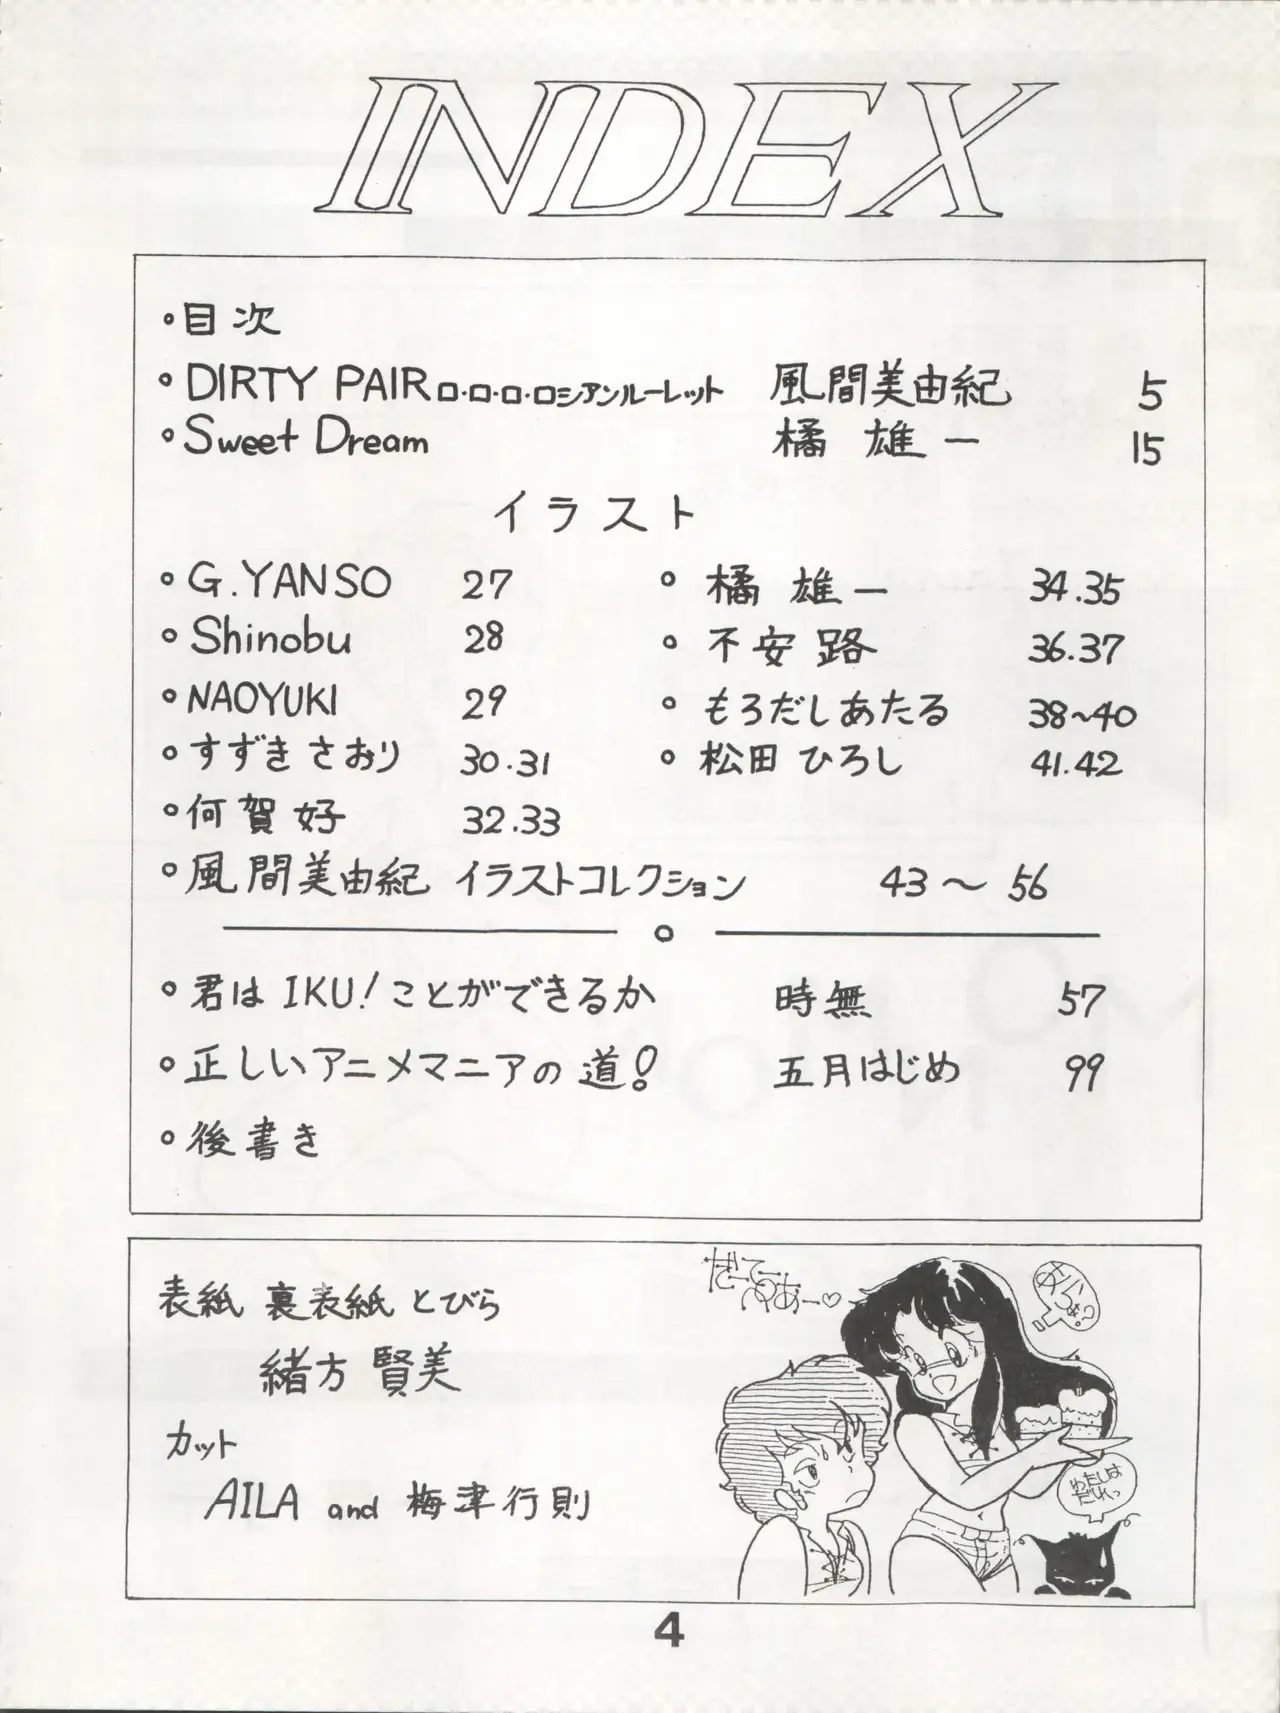 INDEX
・目次
・DIRTY PAIRロ・ロ・ロ・ロシアンルーレット 風間美由紀 5
・Sweet Dream 橘 雄一 15
イラスト
・G.YANSO 27
・Shinobu 28
・NAOYUKI 29
・すずき さおり 30.31
・何賀好 32.33
・橘 雄一 34.35
・不安路 36.37
・もろだしあたる 38~40
・松田ひろし 41.42
・風間美由紀 イラストコレクション 43~56
・君は IKU!ことができるか 時無 57
・正しいアニメマニアの道! 五月はじめ 99
・後書き
表紙 裏表紙 とびら
緒方 賢美
カット
AILA and 梅津行則
わたしは
だれっ
4